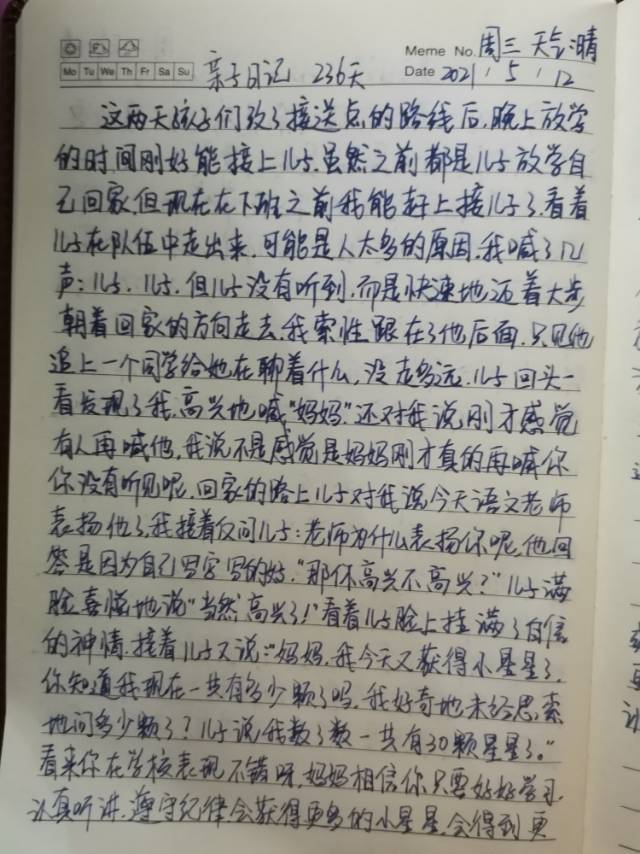 Meme No. 周三 天气:晴
Mo Tu We Th Fr Sa Su
亲子日记 236天
Date 2021 / 5 / 12
这两天孩子们改了接送点的路线后,晚上放学
的时间刚好能接上儿子.虽然之前都是儿子放学自
己回家,但现在在下班之前我能赶上接儿子了.看着
儿子在队伍中走出来,可能是人太多的原因,我喊了几
声:儿子,儿子.但儿子没有听到,而是快速地迈着大步
朝着回家的方向走去.我索性跟在了他后面.只见他
追上一个同学给她在聊着什么,没走多远,儿子回头一
看发现了我,高兴地喊"妈妈".还对我说刚才感觉
有人再喊他,我说不是感觉是妈妈刚才真的再喊你
你没有听见呢.回家的路上儿子对我说今天语文老师
表扬他了.我接着反问儿子:老师为什么表扬你呢,他回
答是因为自己写字写的好."那你高兴不高兴?"儿子满
脸喜悦地说"当然高兴了!"看着儿子脸上挂满了自信
的神情.接着儿子又说:"妈妈,我今天又获得小星星了,
你知道我现在一共有多少颗了吗,我好奇地未经思索
地问多少颗了?儿子说我数了数一共有30颗星星了."
看来你在学校表现不错呀,妈妈相信你只要好好学习,
认真听讲.遵守纪律,会获得更多的小星星,会得到更